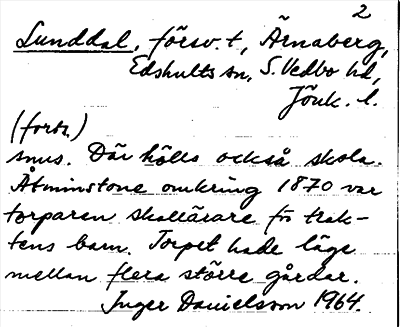 2
Lunddal, försv. t., Ärnaberg,
Edshults sn, S. Vedbo hd,
Jönk. l.
(forts.)
snus. Där hölls också skola.
Åtminstone omkring 1870 var
torparen skollärare för trak-
tens barn. Torpet hade läge
mellan flera större gårdar.
Inger Danielsson 1964.